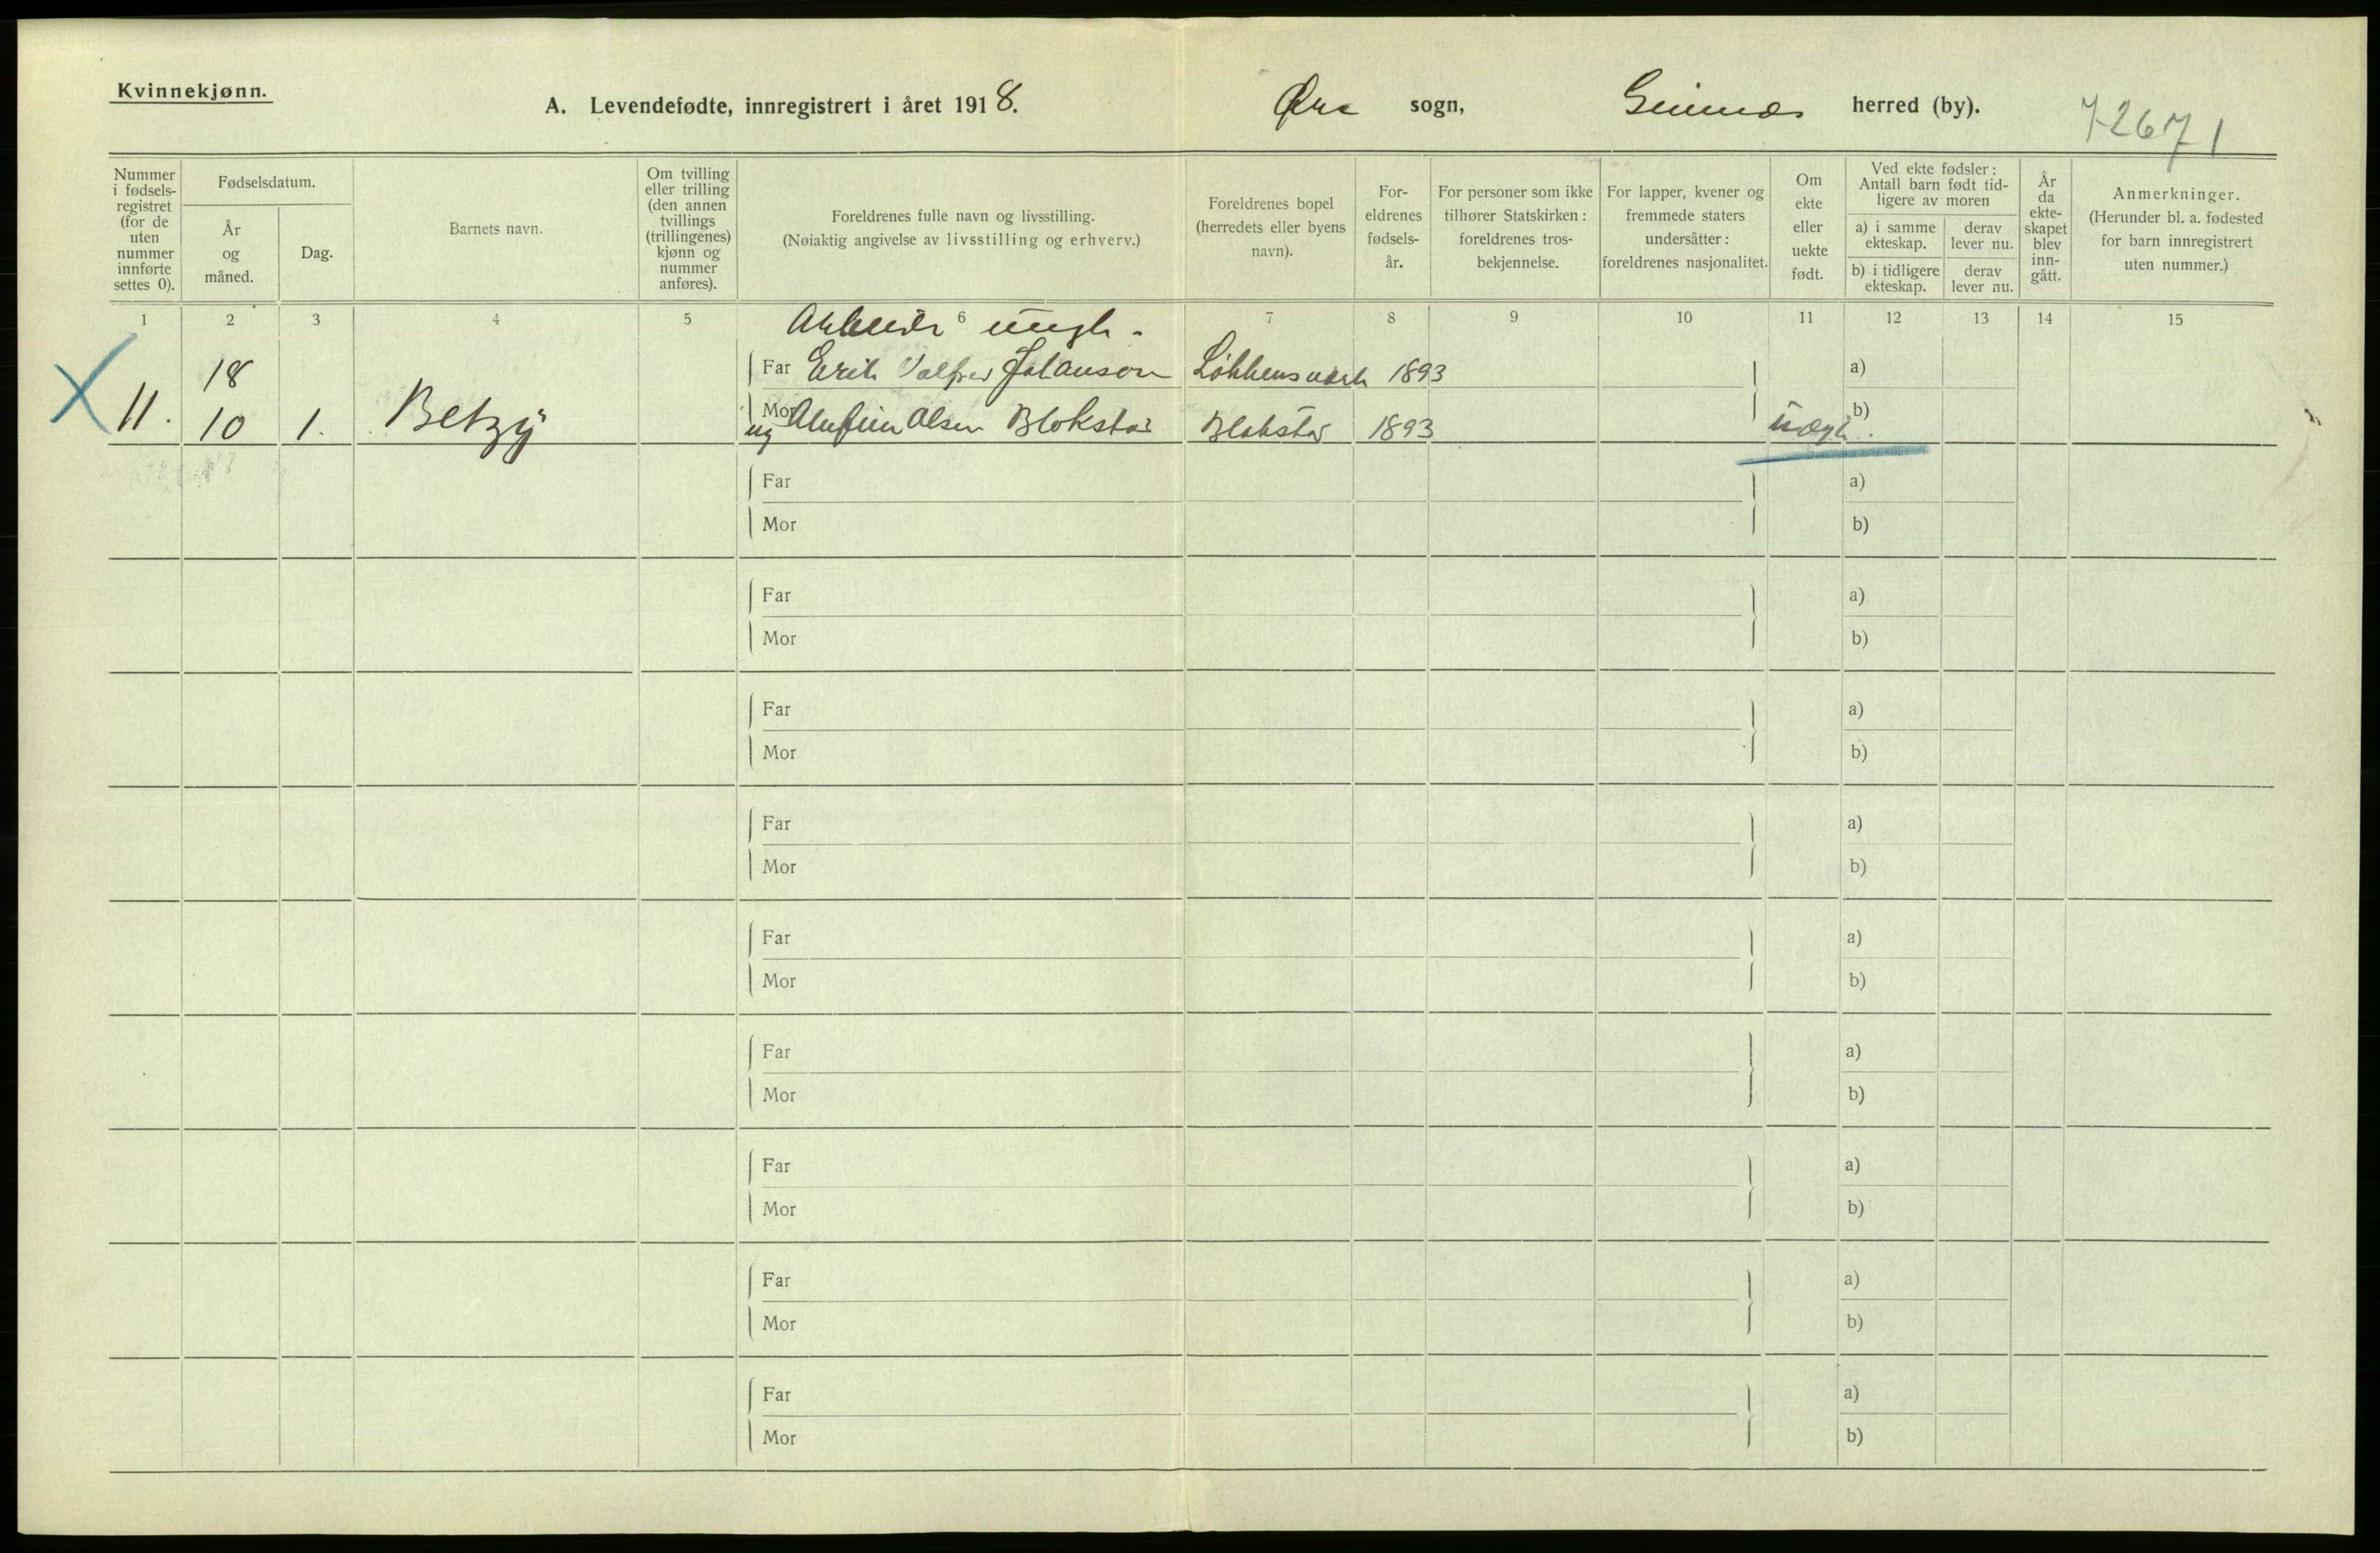 Kvinnekjønn.
A. Levendefødte, innregistrert i året 1918.
Øre sogn, Gimnæs herred (by).
72671
Nummer i fødsels-registret (for de uten nummer innførte settes 0).
Fødselsdatum.
År og måned.
Dag.
Barnets navn.
Om tvilling eller trilling (den annen tvillings (trillingenes) kjønn og nummer anføres).
Foreldrenes fulle navn og livsstilling.
(Nøiaktig angivelse av livsstilling og erhverv.)
Foreldrenes bopel (herredets eller byens navn).
For-eldrenes fødsels-år.
For personer som ikke tilhører Statskirken: foreldrenes tros-bekjennelse.
For lapper, kvener og fremmede staters undersåtter: foreldrenes nasjonalitet.
Om ekte eller uekte født.
Ved ekte fødsler: Antall barn født tid-ligere av moren
a) i samme ekteskap.
derav lever nu.
b) i tidligere ekteskap.
derav lever nu.
År da ekte-skapet blev inn-gått.
Anmerkninger.
(Herunder bl. a. fødested for barn innregistrert uten nummer.)
1 2 3 4 5 6 7 8 9 10 11 12 13 14 15
Arbeider ungk.
18 Far Erik Valfred Johanson Løkkensværk 1893 a)
11. 10 1. Betzy Mor ug Olufine Olsen Blokstad Blakstad 1893 uægte. b)
Far a)
Mor b)
Far a)
Mor b)
Far a)
Mor b)
Far a)
Mor b)
Far a)
Mor b)
Far a)
Mor b)
Far a)
Mor b)
Far a)
Mor b)
Far a)
Mor b)